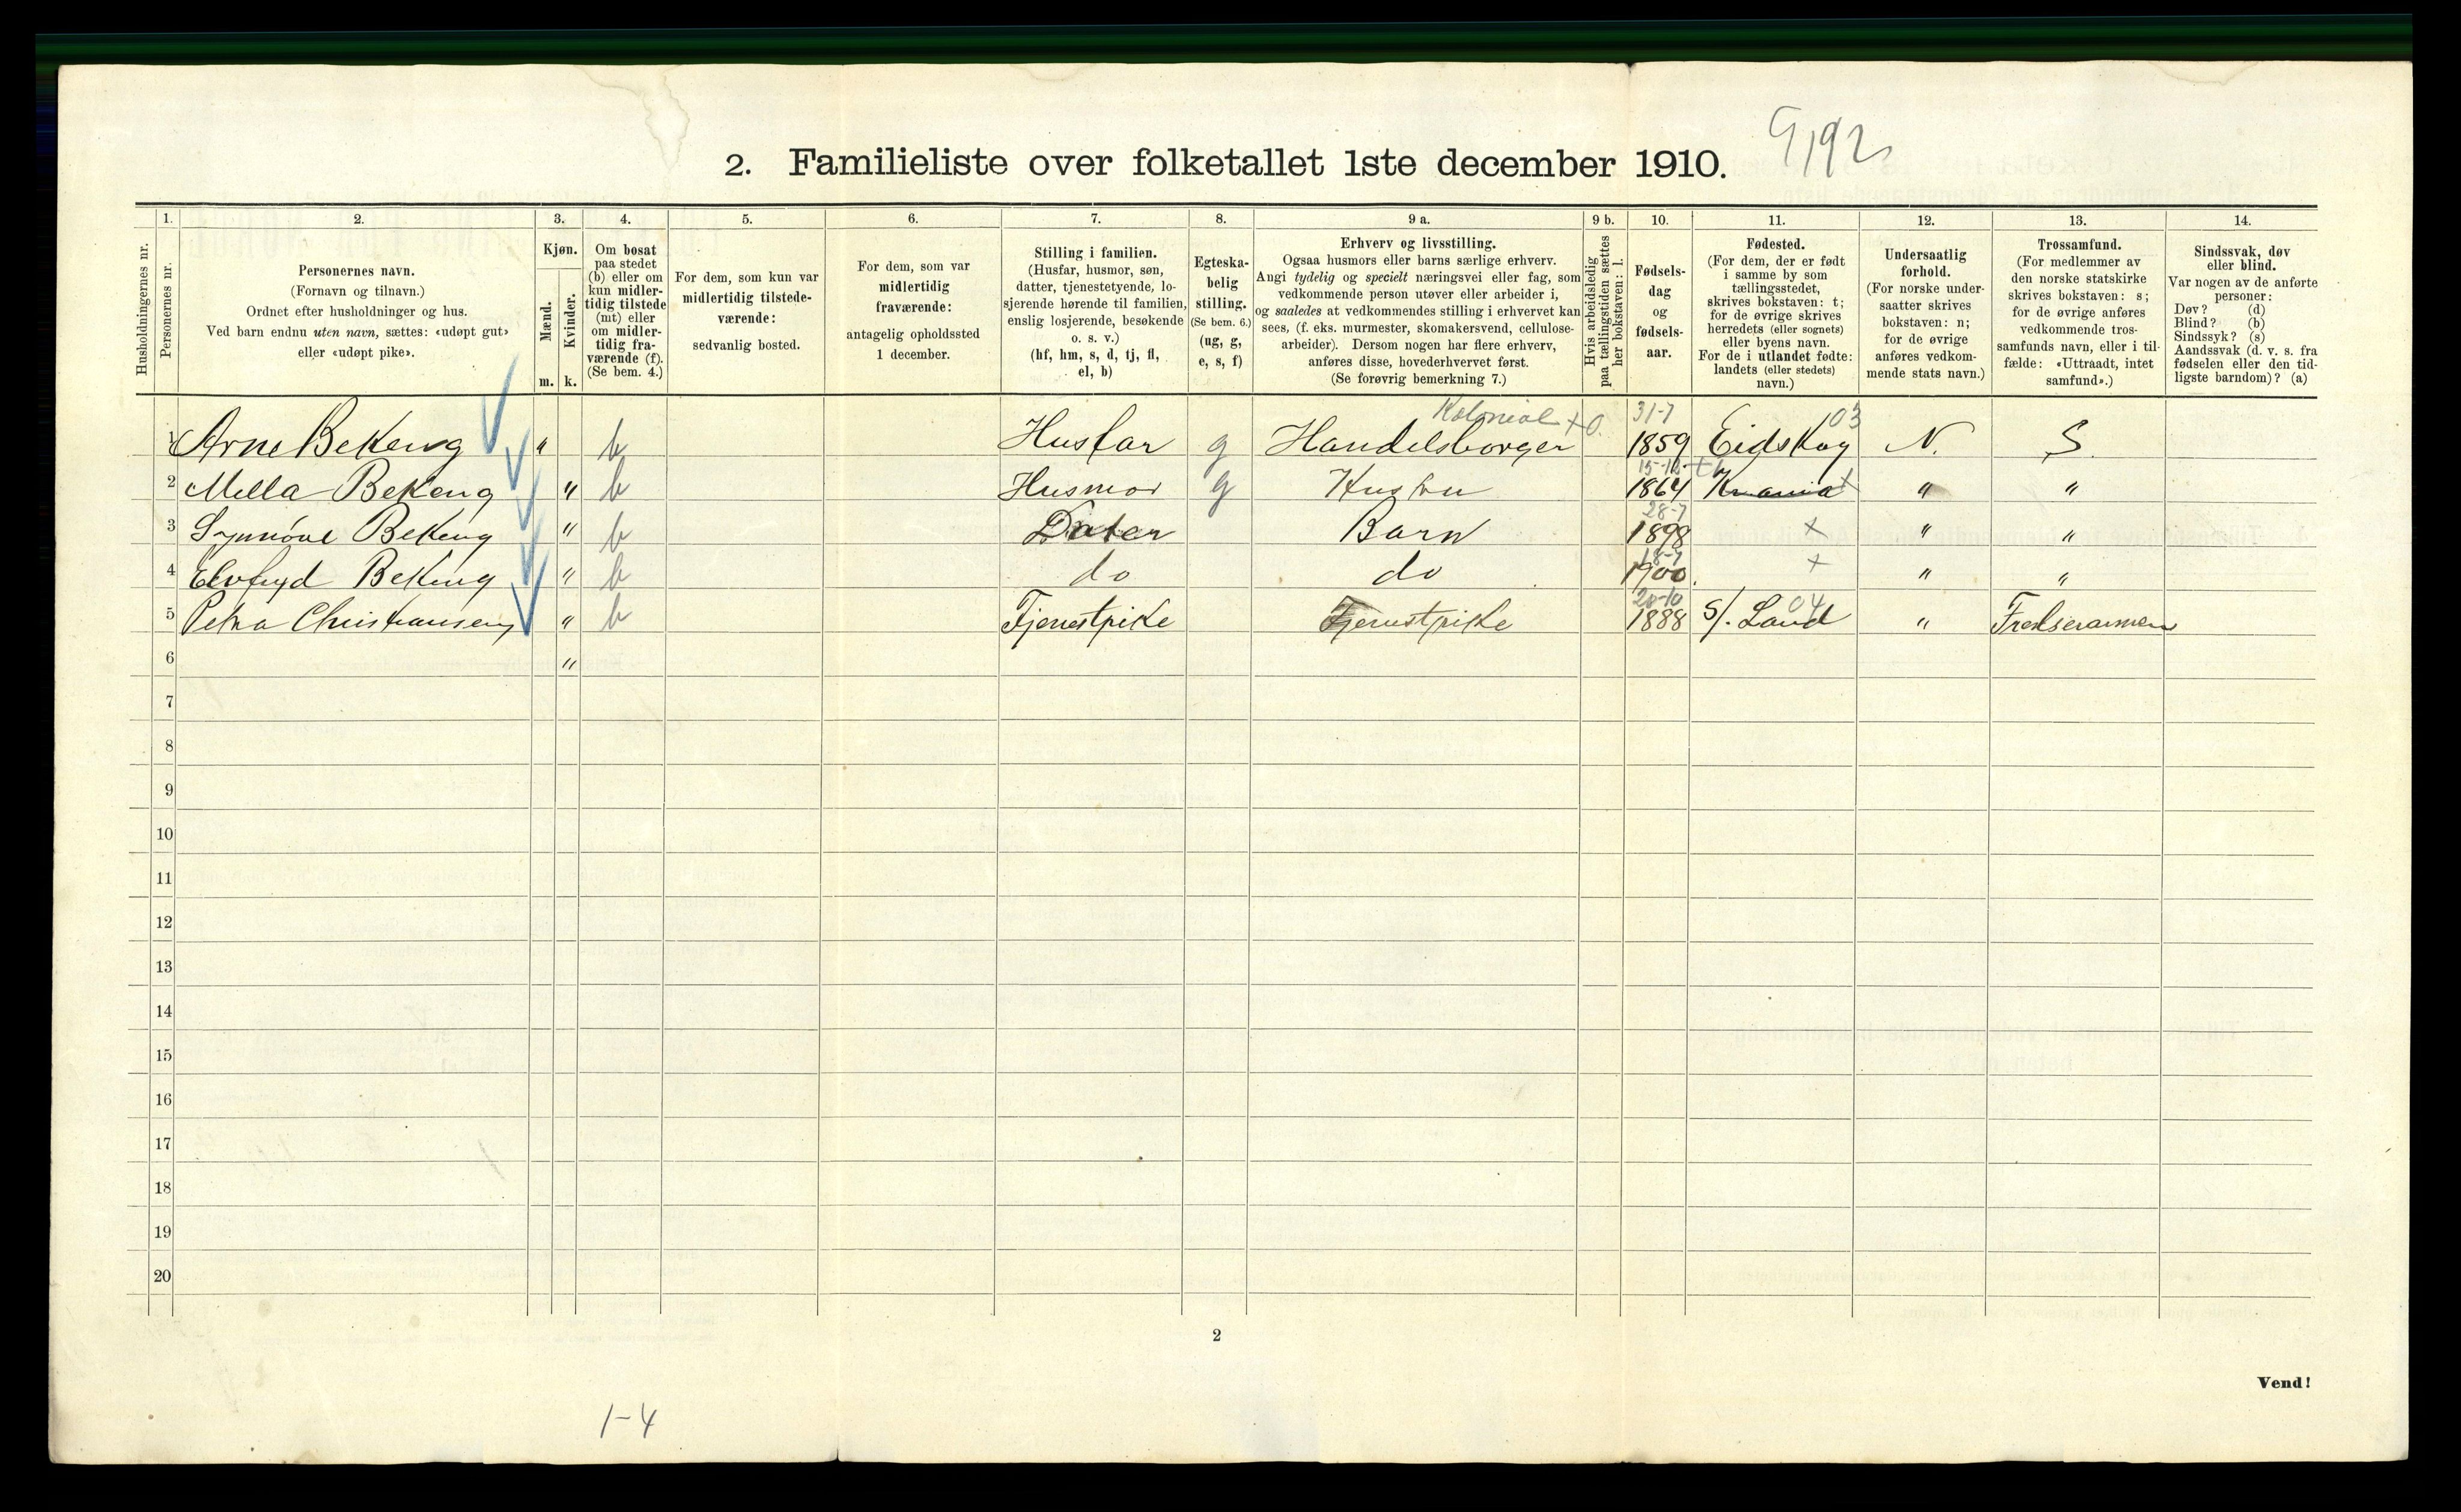 2. Familieliste over folketallet 1ste december 1910.
9192
Husholdningernes nr.
1.
Personernes nr.
2.
Personernes navn.
(Fornavn og tilnavn.)
Ordnet efter husholdninger og hus.
Ved barn endnu uten navn, sættes: «udøpt gut»
eller «udøpt pike».
3.
Kjøn.
Mænd.
Kvinder.
m. k.
4.
Om bosat
paa stedet
(b) eller om
kun midler-
tidig tilstede
(mt) eller
om midler-
tidig fra-
værende (f).
(Se bem. 4.)
5.
For dem, som kun var
midlertidig tilstede-
værende:
sedvanlig bosted.
6.
For dem, som var
midlertidig
fraværende:
antagelig opholdssted
1 december.
7.
Stilling i familien.
(Husfar, husmor, søn,
datter, tjenestetyende, lo-
sjerende hørende til familien,
enslig losjerende, besøkende
o. s. v.)
(hf, hm, s, d, tj, fl,
el, b)
8.
Egteska-
belig
stilling.
(Se bem. 6.)
(ug, g,
e, s, f)
9 a.
Erhverv og livsstilling.
Ogsaa husmors eller barns særlige erhverv.
Angi tydelig og specielt næringsvei eller fag, som
vedkommende person utøver eller arbeider i,
og saaledes at vedkommendes stilling i erhvervet kan
sees, (f. eks. murmester, skomakersvend, cellulose-
arbeider). Dersom nogen har flere erhverv,
anføres disse, hovederhvervet først.
(Se forøvrig bemerkning 7.)
9 b.
Hvis arbeidsledig
paa tællingstiden sættes
her bokstaven: l.
10.
Fødsels-
dag
og
fødsels-
aar.
11.
Fødested.
(For dem, der er født
i samme by som
tællingsstedet,
skrives bokstaven: t;
for de øvrige skrives
herredets (eller sognets)
eller byens navn.
For de i utlandet fødte:
landets (eller stedets)
navn.)
12.
Undersaatlig
forhold.
(For norske under-
saatter skrives
bokstaven: n;
for de øvrige
anføres vedkom-
mende stats navn.)
13.
Trossamfund.
(For medlemmer av
den norske statskirke
skrives bokstaven: s;
for de øvrige anføres
vedkommende tros-
samfunds navn, eller i til-
fælde: «Uttraadt, intet
samfund».)
14.
Sindssvak, døv
eller blind.
Var nogen av de anførte
personer:
Døv? (d)
Blind? (b)
Sindssyk? (s)
Aandssvak (d. v. s. fra
fødselen eller den tid-
ligste barndom)? (a)
Kolonial + O. 31-7 03
1 Arne Bekeng " b Husfar g Handelsborger 1859 Eidskog N. S.
15-12 t
2 Milla Bekeng " b Husmor g Hustru 1864 Krania " "
28-7
3 Synnöve Bekeng " b Dater Barn 1898 + " "
18-7
4 Bekeng " b do do 1900. + " "
20-10 04
5 Petra Christiansen " b Tjenestpike Tjenestpike 1888 S/. Land " Frelserarmen
6 "
7
8
9
10
11
12
13
14
15
16
17
18
19
20
2
Vend!
1-4